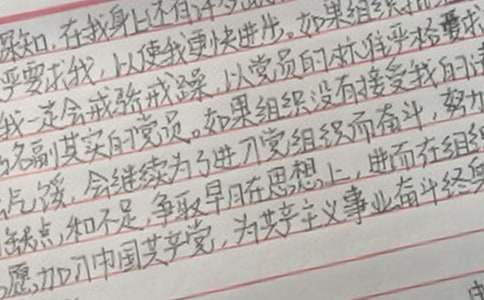 深知，在我身上还有许多
严要求我，以使我更快进步。如果组织批
我一定会戒骄戒躁，以党员的标准严格要求
名副其实的党员。如果组织没有接受我的请
气馁，会继续为了进入党组织而奋斗，努力
缺点，和不足，争取早日在思想上，进而在组织
愿加入中国共产党，为共产主义事业奋斗终身